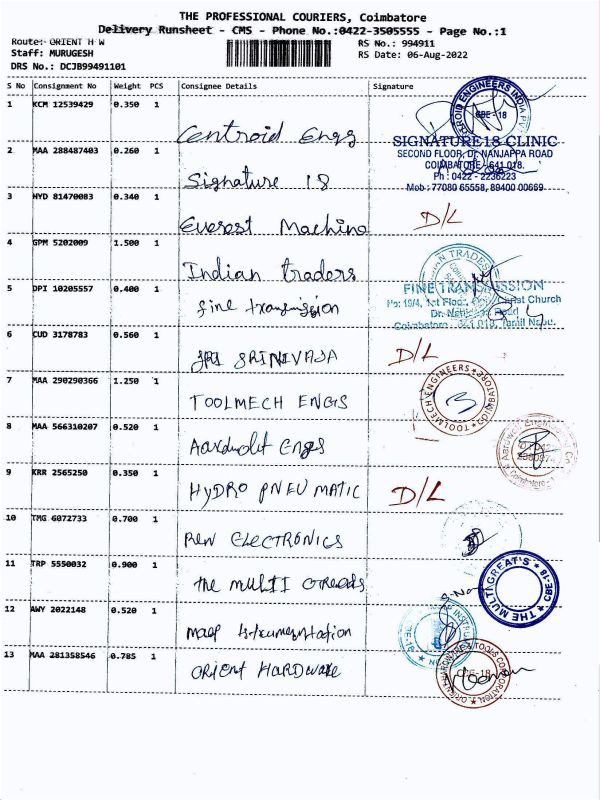 THE PROFESSIONAL COURIERS, Coimbatore
Delivery Runsheet - CMS - Phone No.:0422-3505555 - Page No.:1
Route: ORIENT H W
Staff: MURUGESH
DRS No.: DCJB99491101
RS No.: 994911
RS Date: 06-Aug-2022
S No Consignment No Weight PCS Consignee Details Signature
1 KCM 12539429 0.350 1 Centroid Engs
ROID ENGINEERS INDIA
CBE - 18
2 MAA 288487403 0.260 1 Signature 18
SIGNATURE18 CLINIC
SECOND FLOOR, Dr. NANJAPPA ROAD
COIMBATORE - 641 018.
Ph : 0422 - 2236223
Mob : 77080 65558, 89400 00669
3 HYD 81470083 0.340 1 Everest Machine D/L
4 GPM 5202009 1.500 1 Indian traders
TRADES
5 DPI 10205557 0.400 1 fine transmission
FINE TRANSMISSION
No: 19/4, 1st Floor, Christ Church
Road
Coimbatore - 641 018, Tamil Nadu.
6 CUD 3178783 0.560 1 SRI SRINIVASA D/L
7 MAA 290290366 1.250 1 TOOLMECH ENGS
TOOLMECH ENGINEERS
COIMBATORE
8 MAA 566310207 0.520 1 Engs
9 KRR 2565250 0.350 1 HYDRO PNEUMATIC D/L
10 TMG 6072733 0.700 1 REW ELECTRONICS
11 TRP 5550032 0.900 1 the MULTI
THE MULTAGREAT'S
CBE-18
12 AWY 2022148 0.520 1
13 MAA 281358546 0.785 1 ORIENT HARDWARE
ORIENT HARDWARE & TOOLS CORPORATION
CBE-18